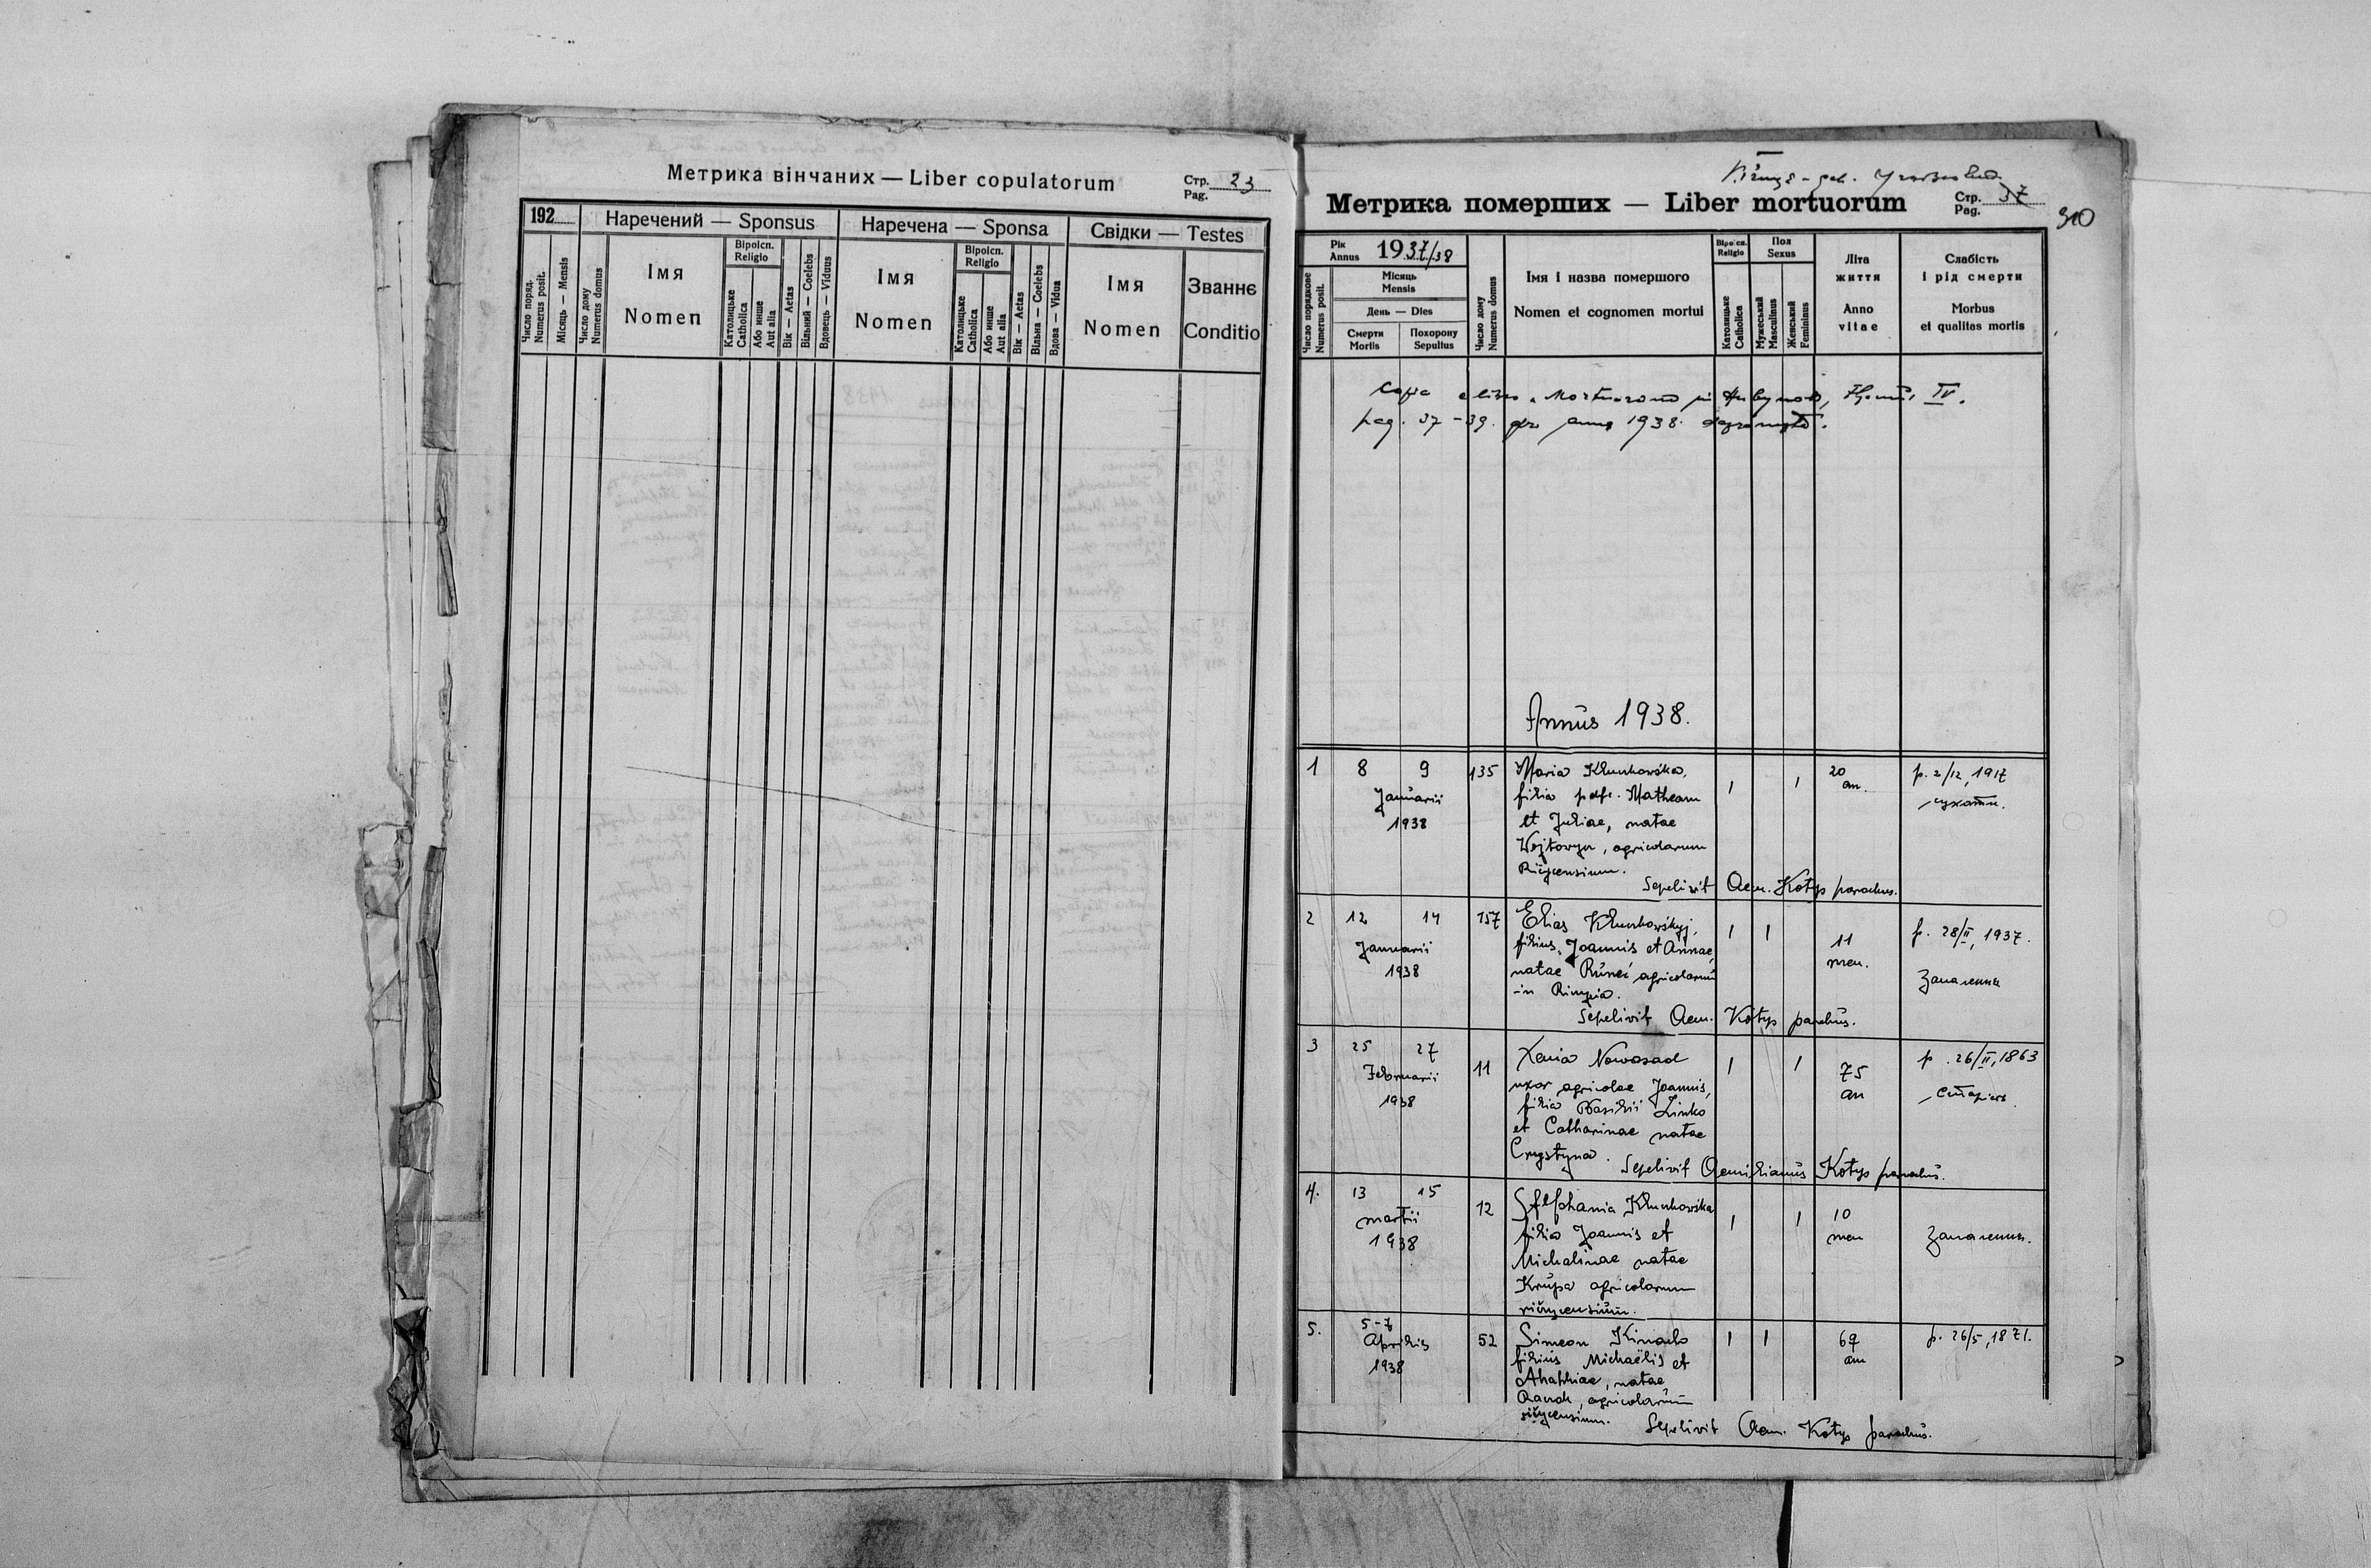 Метрика вінчаних — Liber copulatorum
Стр. Pag. 23
192
Наречений — Sponsus
Наречена — Sponsa
Свідки — Testes
Число поряд. Numerus posit.
Місяць — Mensis
Число дому Numerus domus
Імя
Nomen
Віроісп. Religio
Католицьке Catholica
Або инше Aut alia
Вік — Aetas
Вільний — Coelebs
Вдовець — Viduus
Імя
Nomen
Віроісп. Religio
Католицьке Catholica
Або инше Aut alia
Вік — Aetas
Вільна — Coelebs
Вдова — Vidua
Імя
Nomen
Званнє
Conditio
Метрика померших — Liber mortuorum
Стр. Pag. 37
310
Рік Annus 1937/38
Число порядкове Numerus posit.
Місяць
Mensis
День — Dies
Смерти Mortis
Похорону Sepultus
Число дому Numerus domus
Імя і назва помершого
Nomen et cognomen mortui
Віроісп. Religio
Католицьке Catholica
Пол Sexus
Мужеський Masculinus
Женський Femininus
Літа життя
Anno vitae
Слабість і рід смерти
Morbus et qualitas mortis
Copia e libro Mortuorum
pag. 37-39. pro anno 1938.
Annus 1938.
1 8 9 135 Maria Klunkowska, 1 1 20 an. p. 2/12, 1917
Januarii filia Matheam сухоти.
1938 et Juliae, natae
Wojtowyn, agricolarum
Ričycensium.
Sepelivit Aem. Kotys parochus.
2 12 14 157 Elias Klunkowskyj, 1 1 11 men. p. 28/II, 1937.
Januarii filius Joannis et Annae,
1938 natae agricolarum Запалення
in
Sepelivit Aem. Kotys parochus.
3 25 27 11 Xenia Nowosad 1 1 75 an p. 26/II, 1863
Februarii uxor agricolae Joannis, старість.
1938 filia Wasilii Linko
et Catharinae natae
Crystyna.
Sepelivit Aemilianus Kotys parochus.
4. 13 15 12 Stephania Klunkowska 1 1 10 men Запалення.
martii filia Joannis et
1938 Michalinae natae
Krupa agricolarum
ričycensium.
5. 5-7 52 Simeon 1 1 67 an p. 26/5, 1871.
Aprilis filius Michaëlis et
1938 Ahaphiae, natae
agricolarum
ričycensium.
Sepelivit Aem. Kotys parochus.